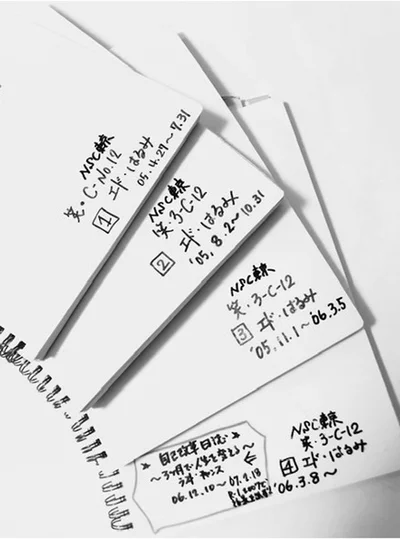 NSC東京
笑・C-No.12
1 エド・はるみ
05.4.29〜7.31
NSC東京
笑・3-C-12
2 エド・はるみ
'05.8.2〜10.31
NSC東京
笑・3-C-12
3 エド・はるみ
'05.11.1〜'06.3.5
NSC東京
笑・3-C-12
4 エド・はるみ
'06.3.8〜
自己改革日記
〜3ヶ月で人生を変える〜
ラストチャンス
06.12.10〜07.2.13